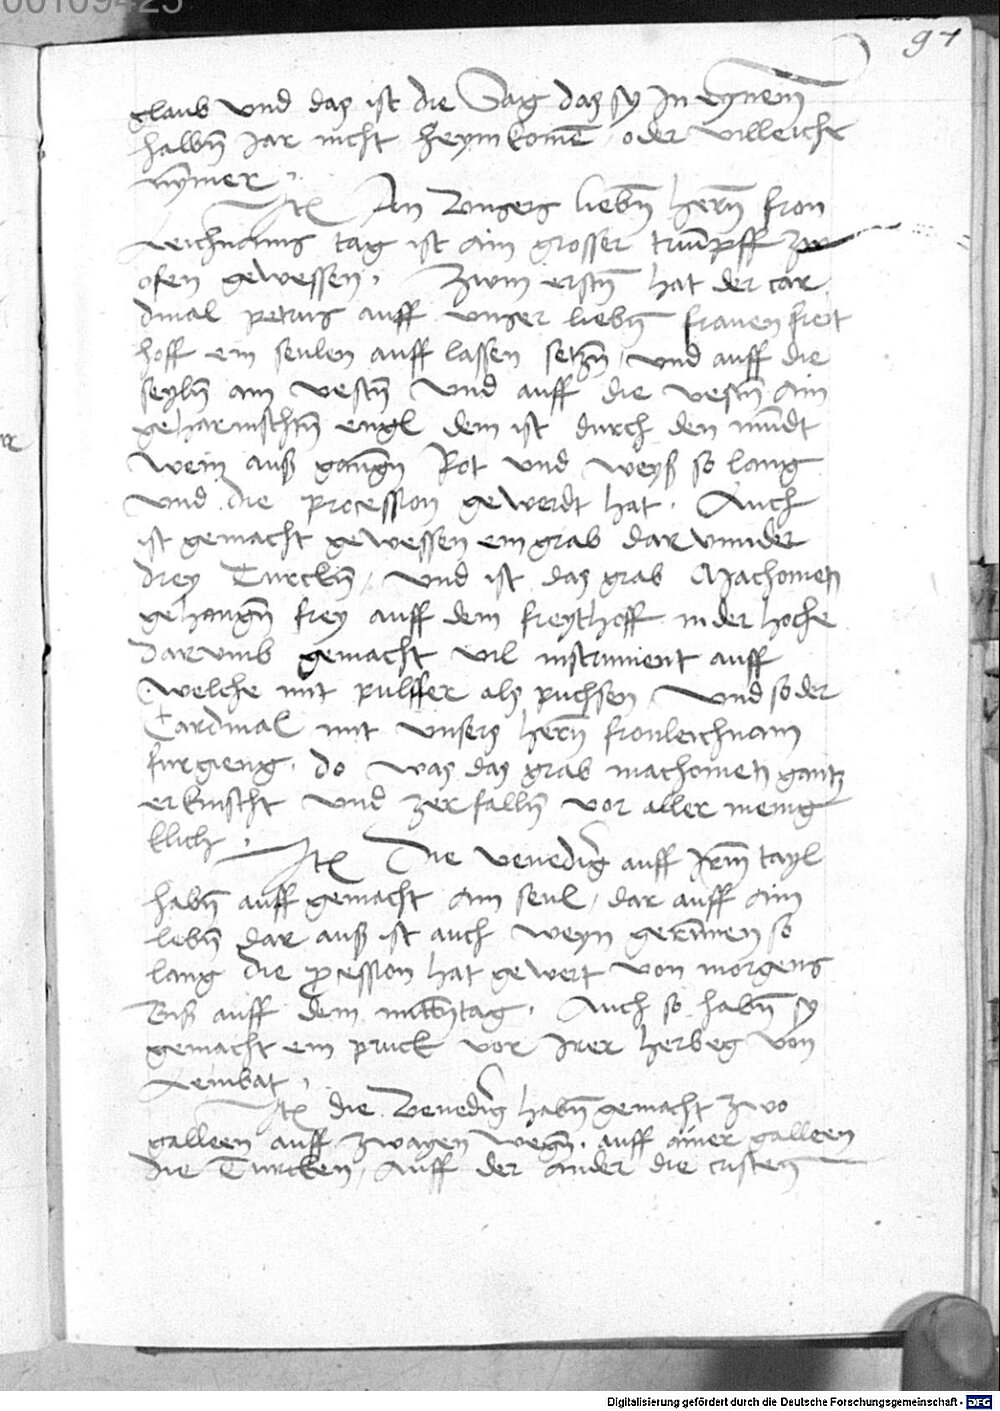 00109425
97
glaub vnd das ist die Sag das sy In eynem
halbn Jar nicht heymkomē oder villeicht
nymer .
Itē An Vnsers liebn hern fron
leichnams tag ist ain grosser triūpff zw
ofen gewessen . Zwm erstn hat der car
dinal petrus auff vnser liebn frauen freit
hoff ein seulen auff lassen setzn , vnd auff die
seyln ain vestn vnd auff die vestn ain
geharnischtn engl dem ist durch den mūdt
wein auß gangn Rot vnd weyß so lang
vnd die procession gewerdt hat . Auch
ist gemacht gewessen ein grab dar vnnder
drey Turckn , vnd ist das grab Machometz
gehangn frey auff dem freythoff in der hoche
dar vmb gemacht vil instrument auff
welche mit pulffer als puchsen , vnd so der
Cardinal mit vnsers hern fronleichnam
furgieng . do was das grab machometz gantz
erknischt vnd zerfalln vor aller menig
klich .
Itē Die venediger auff Irm tayl
habn auff gemacht ain seul , dar auff ain
lebn dar auß ist auch weyn gerūnen so
lang die pcession hat gewert von morgens
Biß auff dem mittntag . Auch so habn sy
gemacht ein pruck vor Irer herbeg von
Leinbat .
Itē die Venediger habn gemacht zwo
galleen auff zwayen wegn . auff ainer galleen
die Turcken , Auff der ander die cristen
Digitalisierung gefördert durch die Deutsche Forschungsgemeinschaft - DFG